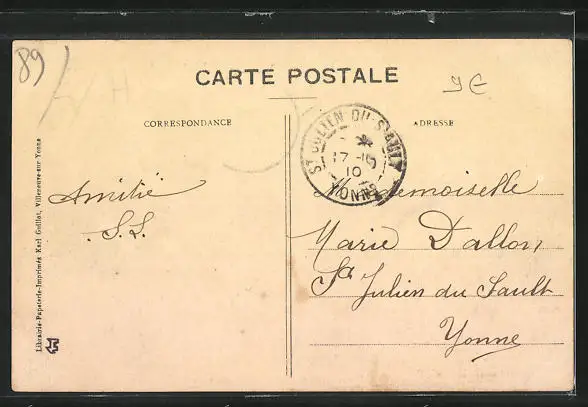 89
CARTE POSTALE
9 €
CORRESPONDANCE
ADRESSE
ST JULIEN-DU-SAULT
17-10
10
YONNE
Amitié
S.S.
Mademoiselle
Marie Dallon
St Julien du Sault
Yonne
Librairie-Papeterie-Imprimés Karl Guillot, Villeneuve-sur-Yonne